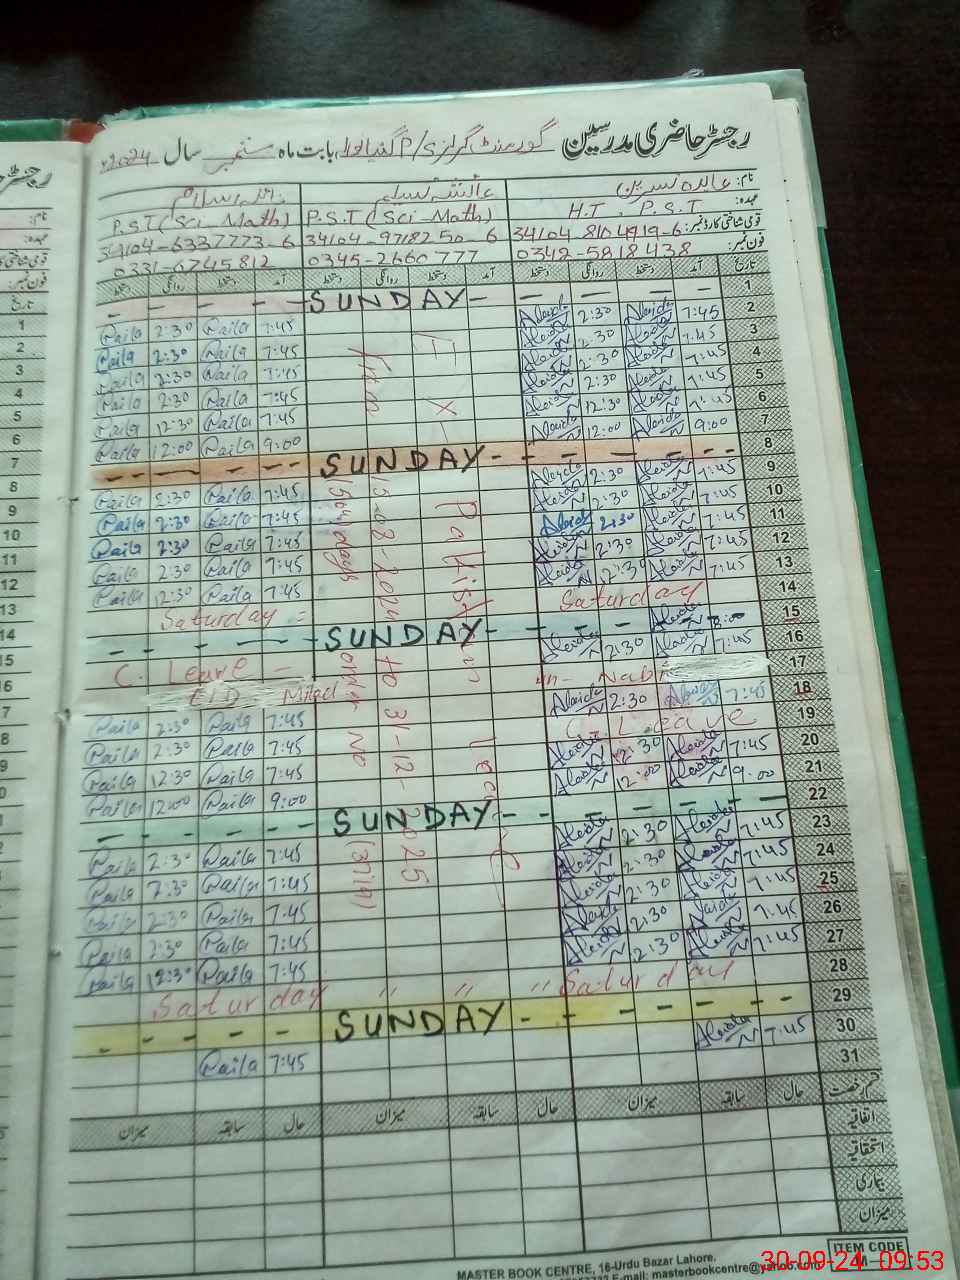 رجسٹر حاضری مدرسین گورنمنٹ گرلز P/S بابت ماہ ستمبر سال 2024
نام: عابدہ نسرین عائشہ نسیم
عہدہ: H.T. P.S.T P.S.T (Sci-Math) P.S.T (Sci-Math)
قومی شناختی کارڈ نمبر: 34104-8104919-6 34104-9718250-6 34104-6337773-6
فون نمبر: 0342-5818438 0345-2660777 0331-6745812
تاریخ آمد دستخط روانگی دستخط آمد دستخط روانگی دستخط آمد دستخط روانگی دستخط
1 SUNDAY
2 7:45 Abida 2:30 Abida 7:45 Raila 2:30 Raila
3 7:45 Abida 2:30 Abida 7:45 Raila 2:30 Raila
4 7:45 Abida 2:30 Abida 7:45 Raila 2:30 Raila
5 7:45 Abida 2:30 Abida 7:45 Raila 2:30 Raila
6 7:45 Abida 12:30 Abida 7:45 Raila 12:30 Raila
7 9:00 Abida 12:00 Abida 9:00 Raila 12:00 Raila
8 SUNDAY
9 7:45 Abida 2:30 Abida 7:45 Raila 2:30 Raila
10 7:45 Abida 2:30 Abida 7:45 Raila 2:30 Raila
11 7:45 Abida 2:30 Abida 7:45 Raila 2:30 Raila
12 7:45 Abida 2:30 Abida 7:45 Raila 2:30 Raila
13 7:45 Abida 12:30 Abida 7:45 Raila 12:30 Raila
14 Saturday Saturday
15 SUNDAY 8:00 Abida
16 7:45 Abida 2:30 Abida C. Leave
17 EID Milad un-Nabi
18 7:45 Abida 2:30 Abida 7:45 Raila 2:30 Raila
19 C. Leave 7:45 Raila 2:30 Raila
20 7:45 Abida 12:30 Abida 7:45 Raila 12:30 Raila
21 9:00 Abida 12:00 Abida 9:00 Raila 12:00 Raila
22 SUNDAY
23 7:45 Abida 2:30 Abida 7:45 Raila 2:30 Raila
24 7:45 Abida 2:30 Abida 7:45 Raila 2:30 Raila
25 7:45 Abida 2:30 Abida 7:45 Raila 2:30 Raila
26 7:45 Abida 2:30 Abida 7:45 Raila 2:30 Raila
27 7:45 Abida 12:30 Abida 7:45 Raila 12:30 Raila
28 Saturday " " " Saturday
29 SUNDAY
30 7:45 Abida 7:45 Raila
31
EX-Pakistan
From 15-08-2024 to 31-12-2025
days order No
قسم رخصت حال سابقہ میزان حال سابقہ میزان حال سابقہ میزان
اتفاقیہ
استحقاقیہ
بیماری
میزان
ITEM CODE
MASTER BOOK CENTRE, 16-Urdu Bazar Lahore.
E-mail: masterbookcentre@yahoo.com
30-09-24 09:53